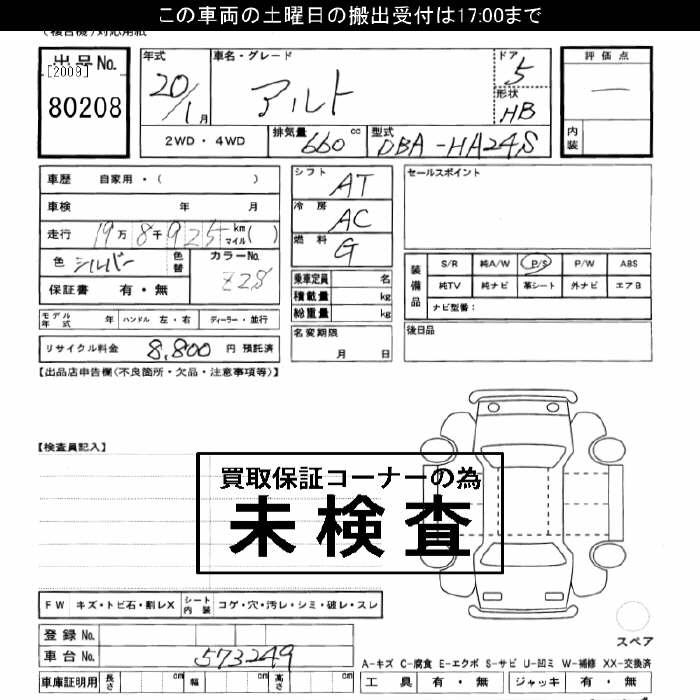 この車両の土曜日の搬出受付は17:00まで
(複合機)対応用紙
出品No.
[2009]
80208
年式
20/1月
車名・グレード
アルト
ドア
5
形状
HB
評価点
—
内装
2WD・4WD
排気量 660 cc
型式 DBA-HA24S
車歴 自家用・( )
車検 年 月
走行 19万8千925 km マイル( )
色 シルバー 色替
カラーNo. Z2S
保証書 有・無
シフト AT
冷房 AC
燃料 G
乗車定員 名
積載量 kg
総重量 kg
セールスポイント
装備品
S/R 純A/W P/S P/W ABS
純TV 純ナビ 革シート 外ナビ エアB
ナビ型番:
モデル年式 年 ハンドル 左・右 ディーラー・並行
名変期限
月 日
後日品
リサイクル料金 8,800 円 預託済
【出品店申告欄(不良箇所・欠品・注意事項等)】
【検査員記入】
買取保証コーナーの為
未検査
FW キズ・トビ石・割レX シート内装 コゲ・穴・汚レ・シミ・破レ・スレ
スペア
登録No.
車台No. 573249
A-キズ C-腐食 E-エクボ S-サビ U-凹ミ W-補修 XX-交換済
車庫証明用 長さ cm 幅 cm 高さ cm
工具 有・無 ジャッキ 有・無